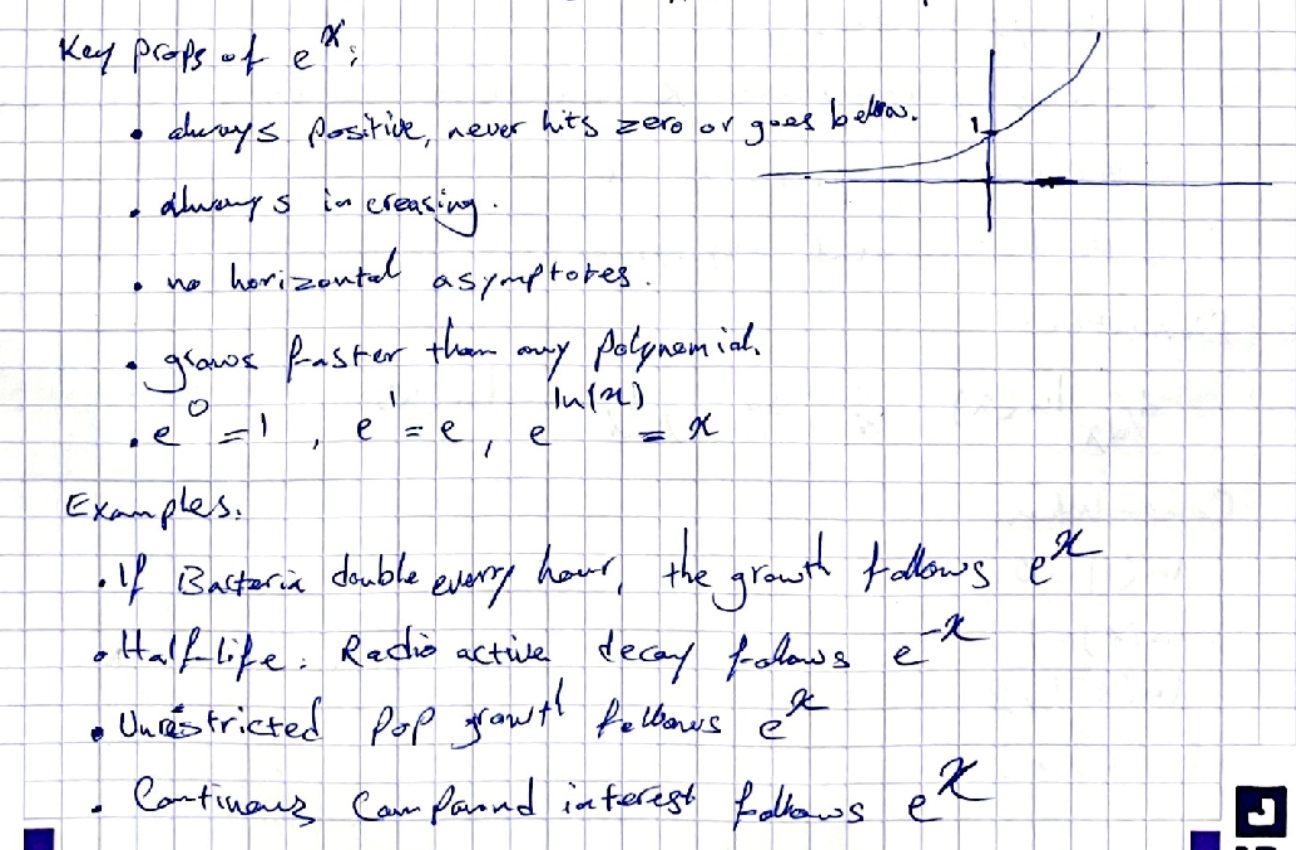 Key props of e^x:
• always positive, never hits zero or goes below.
1
• always increasing.
• no horizontal asymptotes.
• grows faster than any polynomial.
• e^0 = 1, e^1 = e, e^ln(x) = x
Examples:
• If Bacteria double every hour, the growth follows e^x
• Half-life: Radio active decay follows e^-x
• Unrestricted pop growth follows e^x
• Continous Compound interest follows e^x